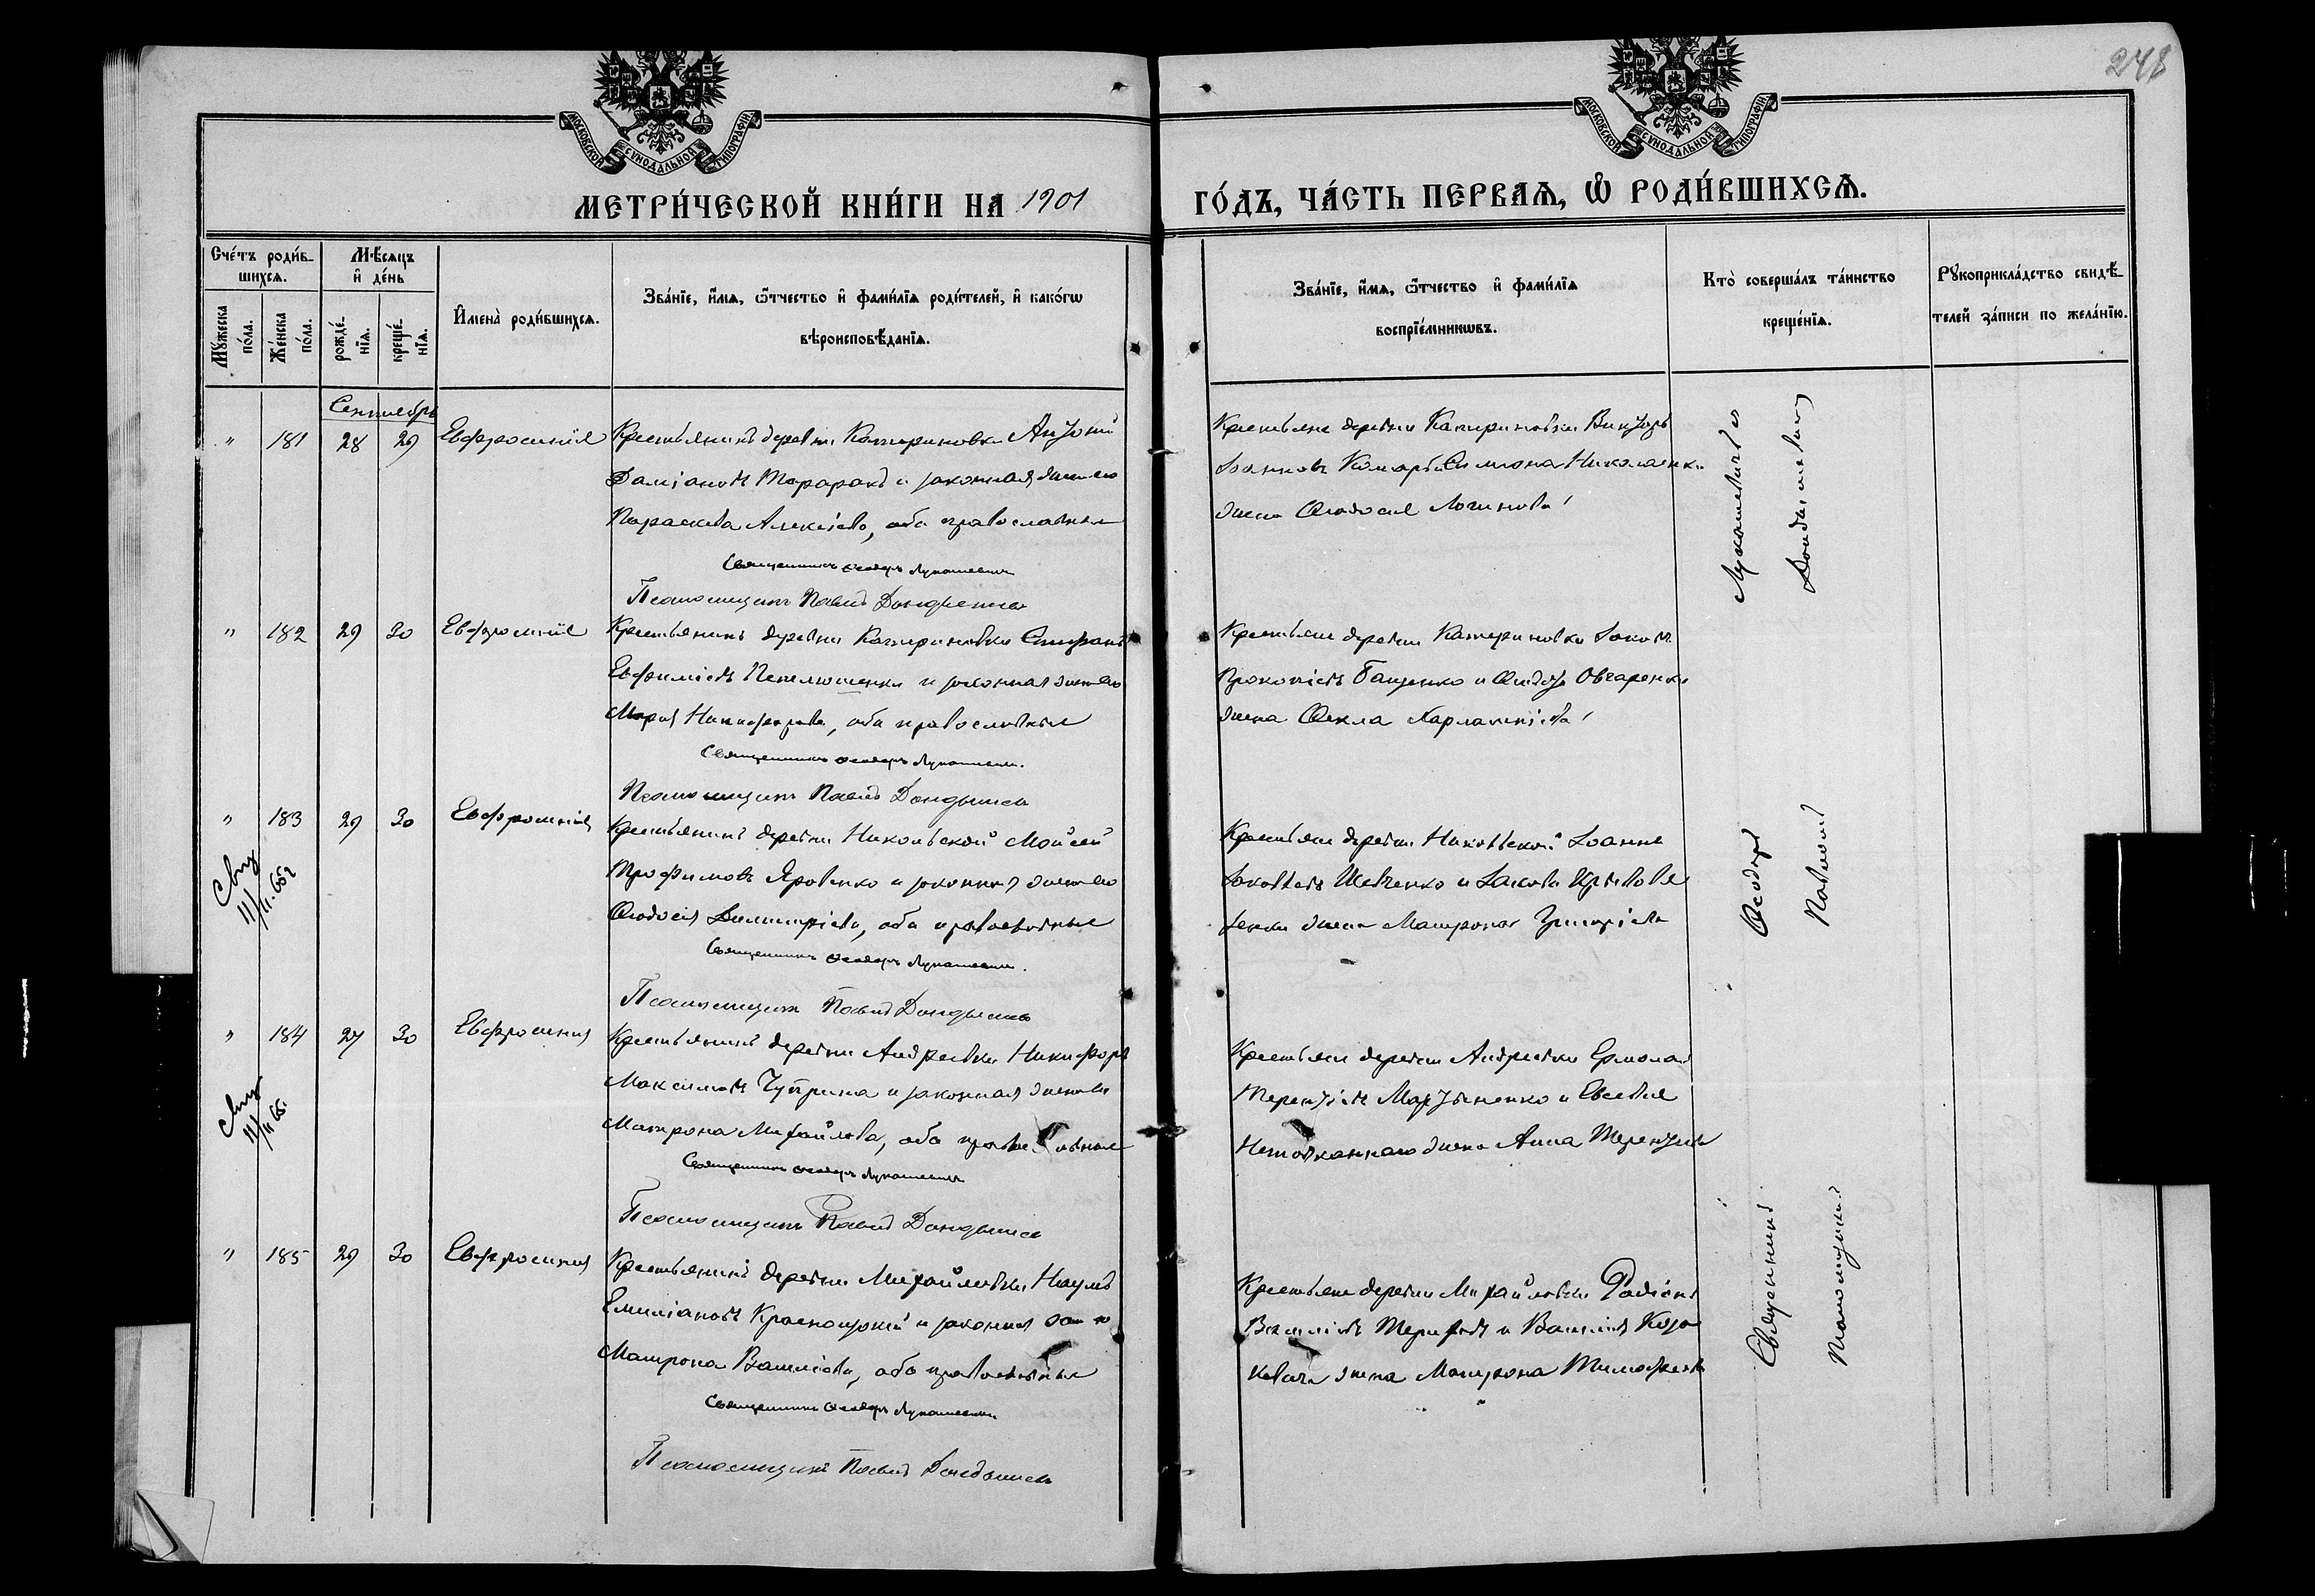 248
МОСКОВСКОЙ СУНОДАЛЬНОЙ ТИПОГРАФІИ
МОСКОВСКОЙ СУНОДАЛЬНОЙ ТИПОГРАФІИ
МЕТРИ́ЧЕСКОЙ КНИ́ГИ НА 1901 ГО́ДЪ, ЧА́СТЬ ПЕРВАѦ, Ѽ РОДИ́ВШИХСѦ.
Сче́тъ роди́в-
шихсѧ.
Мꙋ́жеска
по́ла.
Же́нска
по́ла.
Мѣ́сѧцъ
и҆ де́нь
рожде́-
нїѧ.
креще́-
нїѧ.
И҆мена̀ роди́вшихсѧ.
Зва́нїе, и҆́мѧ, ѻ҆́тчество и҆ фами́лїѧ роди́телей, и҆ како́гѡ
вѣроисповѣ́данїѧ.
Зва́нїе, и҆́мѧ, ѻ҆́тчество и҆ фами́лїѧ
воспрїе́мникѡвъ.
Кто̀ соверша́лъ та́инство
креще́нїѧ.
Рꙋкоприкла́дство свидѣ́-
телей за́писи по жела́нїю.
Сентябрь
" 181 28 29 Евфросинія
Крестьянинъ деревни Катериновки Антоній
Даміановъ Тараранъ и законная жена его
Параскева Алексіева, оба православные
Священникъ Ѳеодоръ Лукашевичъ
Псаломщикъ Павелъ
Крестьяне деревни Катериновки Викторъ
Іоанновъ Комаръ и Симеона Николаенки
жена Ѳеодосія Логинова
" 182 29 30 Евфросинія
Крестьянинъ деревни Катериновки Стефанъ
Евфиміевъ Пепелюшенко и законная жена его
Марія Никифорова, оба православные
Священникъ Ѳеодоръ Лукашевичъ.
Псаломщикъ Павелъ
Крестьяне деревни Катериновки Іаковъ
Прокопіевъ Бащенко и Ѳеодора Овчаренка
жена Ѳекла Харлампіева
" 183 29 30 Евфросинія
Крестьянинъ деревни Никольской Мойсей
Трофимовъ Яровенко и законная жена его
Ѳеодосія Димитріева, оба православные
Священникъ Ѳеодоръ Лукашевичъ.
Псаломщикъ Павелъ
Крестьяне деревни Никольской Іоаннъ
Іаковлевъ Шевченко и Іакова
жена Матрона Григоріева
" 184 27 30 Евфросинія
Крестьянинъ деревни Андреевки Никифоръ
Максимовъ Чуприна и законная жена его
Матрона Михайлова, оба православные
Священникъ Ѳеодоръ Лукашевичъ
Псаломщикъ Павелъ
Крестьяне деревни Андреевки Ермолай
Терентіевъ Мартыненко и Евсевія
жена Анна Терентіева
" 185 29 30 Евфросинія
Крестьянинъ деревни Михайловки Наумъ
Емиліановъ и законная жена его
Матрона Василіева, оба православные
Священникъ Ѳеодоръ Лукашевичъ
Псаломщикъ Павелъ
Крестьяне деревни Михайловки Родіонъ
Василіевъ и Василія
жена Матрона Тимофеева
Священникъ Ѳеодоръ Лукашевичъ
Псаломщикъ Павелъ